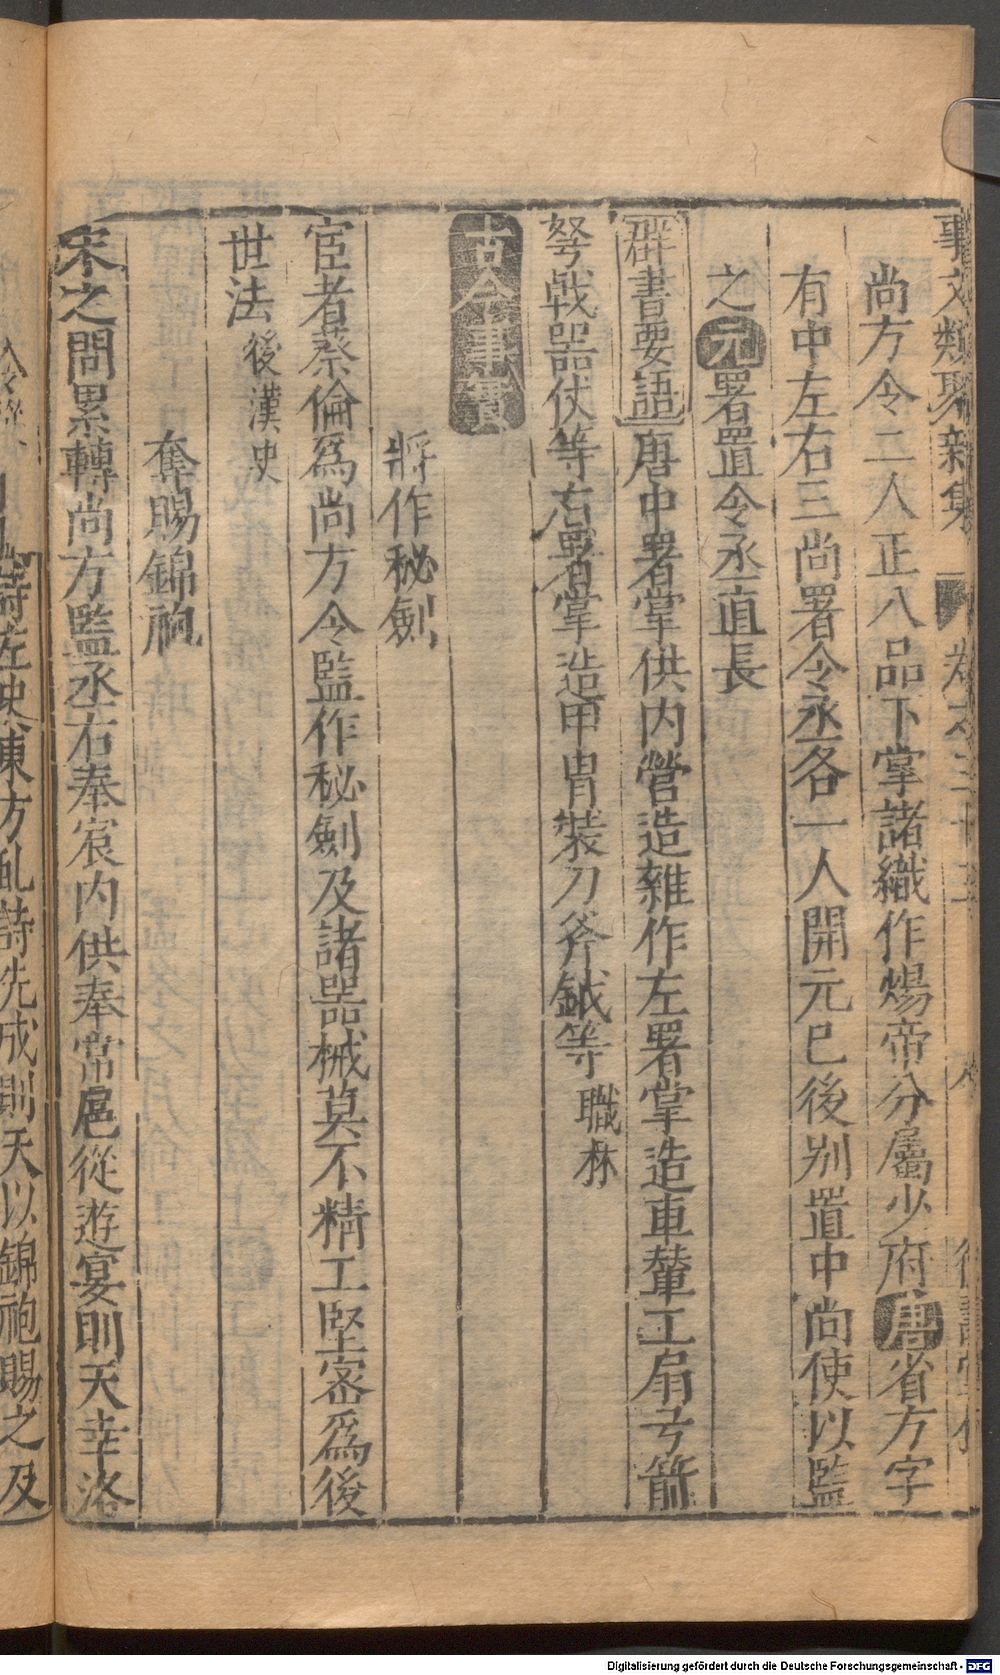 事文類聚新集 卷之三十三
尚方令二人正八品下掌諸織作煬帝分屬少府唐省方字
有中左右三尚署令丞各一人開元已後別置中尚使以監
之元署置令丞直長
群書要語唐中署掌供内營造雜作左署掌造車輦工扇弓箭
弩戟器仗等右署掌造甲胄裝刀斧鉞等職林
古今事實
將作秘劍
宦者蔡倫爲尚方令監作秘劍及諸器械莫不精工堅密爲後
世法後漢史
奪賜錦袍
宋之問累轉尚方監丞右奉宸内供奉常扈從遊宴則天幸洛
詩左史東方虬詩先成則天以錦袍賜之及
Digitalisierung gefördert durch die Deutsche Forschungsgemeinschaft - DFG